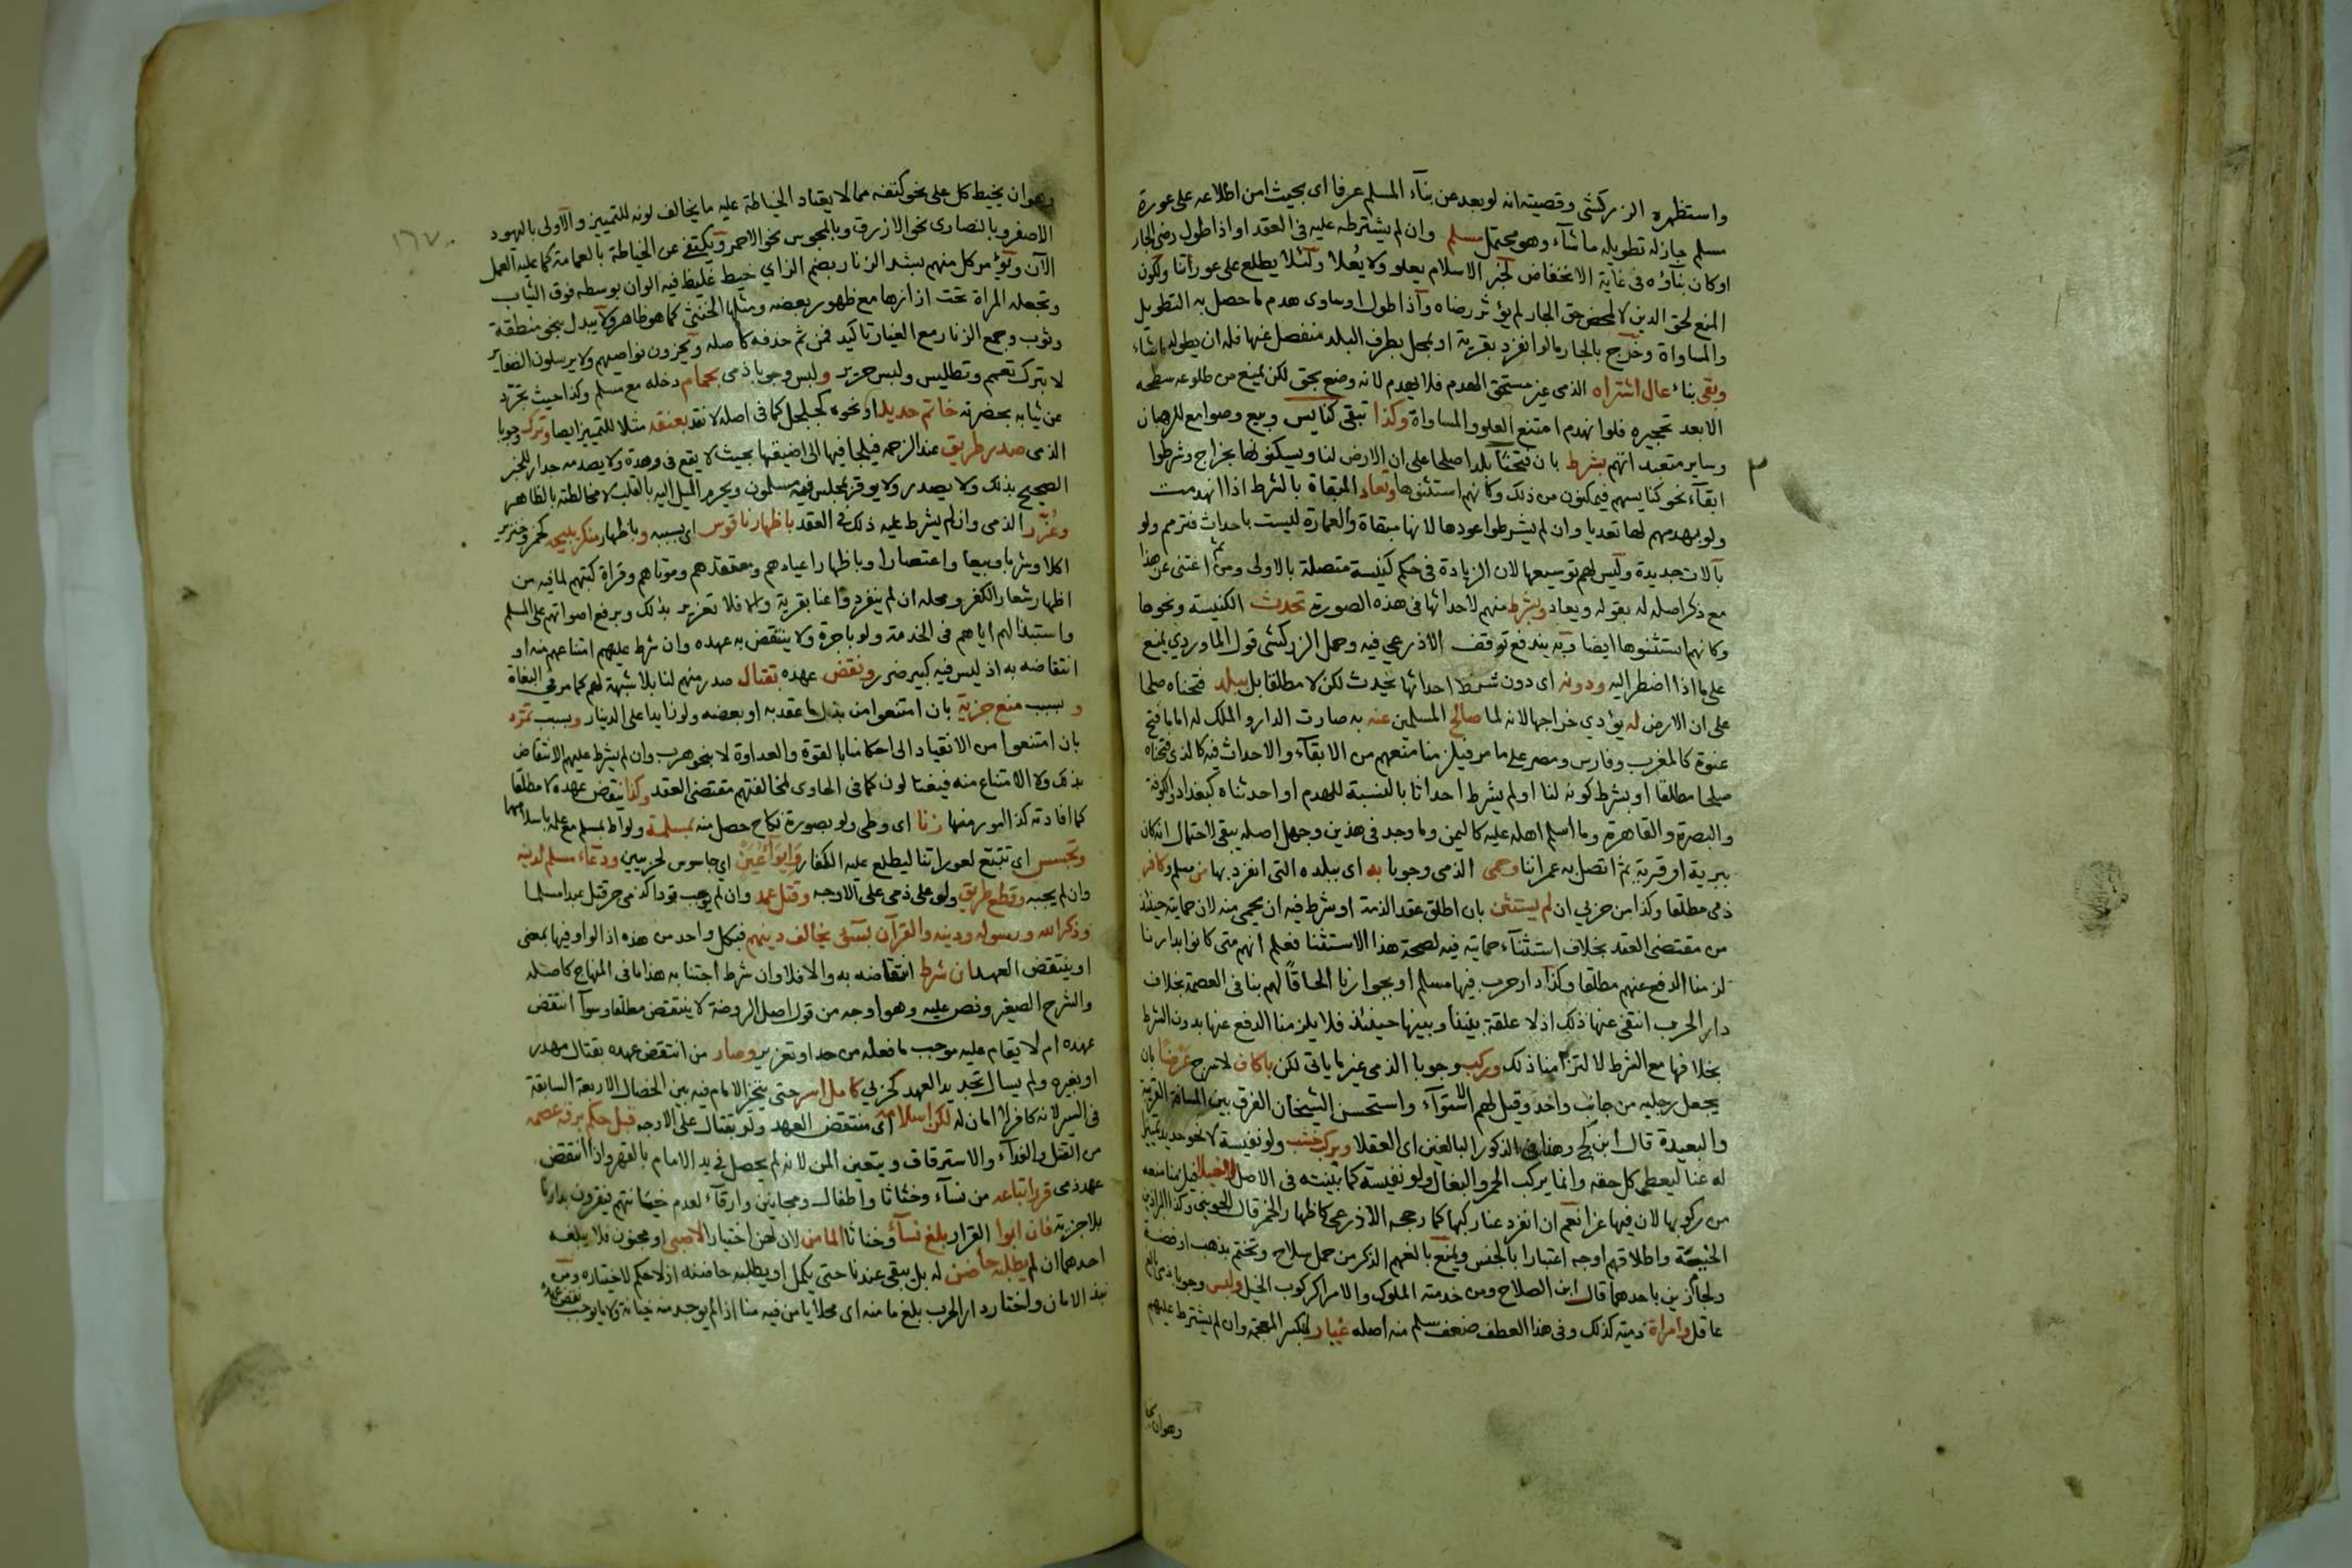 واستظهره الزركشي وقضيته انه لو بعد عن بنآء المسلم عرفا اى بحيث امن اطلاعه على عورة
مسلم جاز له تطويله ما شآء وهو محتمل مسلم وان لم يشترطه عليه فى العقد او اذا طول رضى الجار
اوكان بنآؤه فى غاية الانخفاض لخبر الاسلام يعلو ولا يُعلا ولئلا يطلع على عوراتنا ولكون
المنع لحق الدين لا لمحض حق الجار لم يؤثر رضاه واذا طول او ساوى هدم ما حصل به التطويل
والمساواة وخرج بالجار ما لو انفرد بقرية او بمحل بطرف البلد منفصل عنها فله ان يطوله ما شاء
وبقى بناء عال اشتراه الذمى غير مستحق الهدم فلا يهدم لانه وضع بحق لكن يمنع من طلوعه سطحه
الا بعد تحجيره فلو انهدم امتنع العلو والمساواة وكذا تبقى كنايس وبيع وصوامع للرهبان
وساير متعبداتهم بشرط بان فتحنا بلدا صلحا على ان الارض لنا ويسكنونها بخراج وشرطوا
ابقآء نحو كنايسهم فيمكنون من ذلك وكانهم استثنوها وتعاد المبقاة بالشرط اذا انهدمت
ولو بهدمهم لها تعديا وان لم يشرطوا عودها لانها مبقاة والعمارة ليست باحداث فترمم ولو
بآلات جديدة وليس لهم توسيعها لان الزيادة فى حكم كنيسة متصلة بالاولى ومن ثم اغتنى عن هذا
مع ذكر اصله له بقوله ويعاد وبشرط منهم لاحداثها فى هذه الصورة تحدث الكنيسة ونحوها
وكانهم استثنوها ايضا وبه يندفع توقف الاذرعي فيه وحمل الزركشى قول الماوردي يمنع
على ما اذا اضطر اليه ودونه اى دون شرط احداثها بحدث لكن لا مطلقا بل ببلد فتحناه صلحا
على ان الارض له يؤدي خراجها لانه لما صالح المسلمين عنه به صارت الدار والملك له اما ما فتح
عنوة كالمغرب وفارس ومصر على ما مر فيلزمنا منعهم من الابقآء والاحداث فيه كالذى فتحناه
صلحا مطلقا او بشرط كونه لنا ولم يشرط احداثا بالنسبة للهدم او احدثناه كبغداد والكوفة
والبصرة والقاهرة وما اسلم اهله عليه كاليمن وما وجد فى هذين وجهل اصله يبقى لاحتمال انه كان
ببرية او قرية ثم اتصل به عمراننا وحمى الذمى وجوبا به اى ببلده التى انفرد بها من مسلم وكافر
ذمى مطلقا وكذا من حربي ان لم يستثن بان اطلق عقد الذمة او شرط فيه ان يحمى منه لان حمايته حينئذ
من مقتضى العقد بخلاف استثنآء حمايته فيه لصحة هذا الاستثنا فعلم انهم متى كانوا بدارنا
لزمنا الدفع عنهم مطلقا وكذا دار حرب فيها مسلم او بجوارنا الحاقاً لهم بنا فى العصمة بخلاف
دار الحرب انتفى عنها ذلك اذ لا علقة بيننا وبينها حينئذ فلا يلزمنا الدفع عنها بدون الشرط
بخلافها مع الشرط لالتزامنا ذلك وركب وجوبا الذمى غير ما ياتى لكن باكاف لا سرج عَرْضًا بان
يجعل رجليه من جانب واحد وقيل لهم الاستوآء واستحسن الشيخان الفرق بين المسافة القريبة
والبعيدة قال ابن كج وهذا فى الذكور البالغين اى العقلا وبركب خشب ولو نفيسة لا نحو حديد تمييزا
له عنا ليعطى كل حقه وانما يركب الحمر والبغال ولو نفيسة كما بينته فى الاصل لا خيلا فيلزمنا منعه
من ركوبها لان فيها عزا نعم ان انفرد عنا ركبها كما رجحه الاذرعي كاظهار الخمر قال الجويني وكذا البراذين
الخسيسة واطلاقهم اوجه اعتبارا بالجنس ويمنع بالغهم الذكر من حمل سلاح وتختم بذهب او فضة
ولجام زين باحدهما قال ابن الصلاح ومن خدمة الملوك والامرا كركوب الخيل ولبس وجوبا ذمى بالغ
عاقل وامراة ذمية كذلك وفى هذا العطف ضعف سلم منه اصله غيار بكسر المعجمة وان لم يشترط عليهم
وهوان يخا
١٦٧
وهوان يخيط كل على نحو كتفه مما لا يعتاد الخياطة عليه ما يخالف لونه للتمييز والاولى باليهود
الاصفر وبالنصارى نحو الازرق وبالمجوس نحو الاحمر ويكتفى عن الخياطة بالعمامة كما عليه العمل
الآن ويؤمر كل منهم بشد الزنار بضم الزاي خيط غليظ فيه الوان بوسطه فوق الثياب
وتجعله المراة تحت ازارها مع ظهور بعضه ومثلها الخنثى كما هو ظاهر ولا يبدل بنحو منطقة
وثوب وجمع الزنار مع الغيار تاكيد فمن ثم حذفه كاصله ويجزون نواصيهم ولا يرسلون الضفاير
لا بترك تعمم وتطليس ولبس حرير ولبس وجوبا ذمى بحمام دخله مع مسلم وكذا حيث تجرد
عن ثيابه بحضرته خاتم حديد او نحوه كجلجل كما فى اصله لا نقد بعنقه مثلا للتمييز ايضا وترك وجوبا
الذمى صدر طريق عند الزحمه فيلجا فيها الى اضيقها بحيث لا يقع فى وهدة ولا يصدمه جدار للخبر
الصحيح بذلك ولا يصدر ولا يوقر بمجلس فيه مسلمون ويحرم الميل اليه بالقلب لا مخالطته بالظاهر
وعُزّر الذمى وان لم يشرط عليه ذلك فى العقد باظهار ناقوس اى بسببه وباظهار منكر بليحه كخمر وخنزير
اكلا وشربا وبيعا واعتصارا وباظهار اعيادهم ومعتقدهم وموتاهم وقراة كتبهم لما فيه من
اظهار شعار الكفر ومحله ان لم ينفردوا عنا بقرية والا فلا تعزير بذلك وبرفع اصواتهم على المسلم
واستبذالهم اياهم فى الخدمة ولو باجرة ولا ينتقض به عهده وان شرط عليهم امتناعهم منه او
انتقاضه به اذ ليس فيه كبير ضرر ونقض عهده بقتال صدر منهم لنا بلا شبهة لهم كما مر فى البغاة
و بسبب منع جزية بان امتنعوا من بذل ما عقد به او بعضه ولو زايدا على الدينار وبسبب تمرد
بان امتنعوا من الانقياد الى احكامنا بالقوة والعداوة لا بنحو هرب وان لم يشرط عليهم الانتقاض
بذلك ولا الامتناع منه فيغتالون كما فى الحاوى لمخالفتهم مقتضى العقد وكذا ينقض عهده لا مطلقا
كما افادته كذا بامور منها زنا اى وطى ولو بصورة نكاح حصل منه بمسلمة ولواط بمسلم مع علمه باسلامهما
وتجسس اى تتبع لعوراتنا ليطلع عليه الكفار وَايوَاعَيْن اي جاسوس لحربيين ودعاء مسلم لدينه
وان لم يجبه وقطع طريق ولو على ذمى على الاوجه وقتل عمد وان لم يوجب قودا كذمى حر قتل عبدا مسلما
وذكر الله ورسوله ودينه والقرآن بسؤ يخالف دينهم فبكل واحد من هذه اذ الواو فيها بمعنى
او ينتقض العهد ان شرط انتقاضه به والا فلا وان شرط اجتنابه هذا ما فى المنهاج كاصله
والشرح الصغير ونص عليه وهو اوجه من قول اصل الروضة لا ينتقض مطلقا وسوآ انتقض
عهده ام لا يقام عليه موجب ما فعله من حد او تعزير وصار من انتقض عهده بقتال مهدر
او بغيره ولم يسال تجديد العهد كحربي كامل اسر حتى يتخير الامام فيه بين الخصال الاربعة السابقة
فى السير لانه كافر لا امان له لكن اسلامه اى منتقض العهد ولو بقتال على الاوجه قبل حكم برقه عصمه
من القتل والفدآء والاسترقاق ويتعين المن لانه لم يحصل فى يد الامام بالقهر واذا انتقض
عهد ذمى قرر اتباعه من نسآء وخناثا واطفال ومجانين وارقآء لعدم خيانتهم فيقرون بدارنا
بلا جزية فان ابوا القرار بلغ نسآء وخناثا المامن لان لهن اختيارا لا صبى او مجنون فلا يبلغه
احدهما ان لم يطلبه حاضن له بل يبقى عندنا حتى يكمل او يطلبه حاضنه اذ لا حكم لاختياره ومن
نبذ الامان واختار دار الحرب بلغ مامنه اى محلا يامن فيه منا اذا لم يوجد منه خيانة ولا ما يوجب نقض عهده